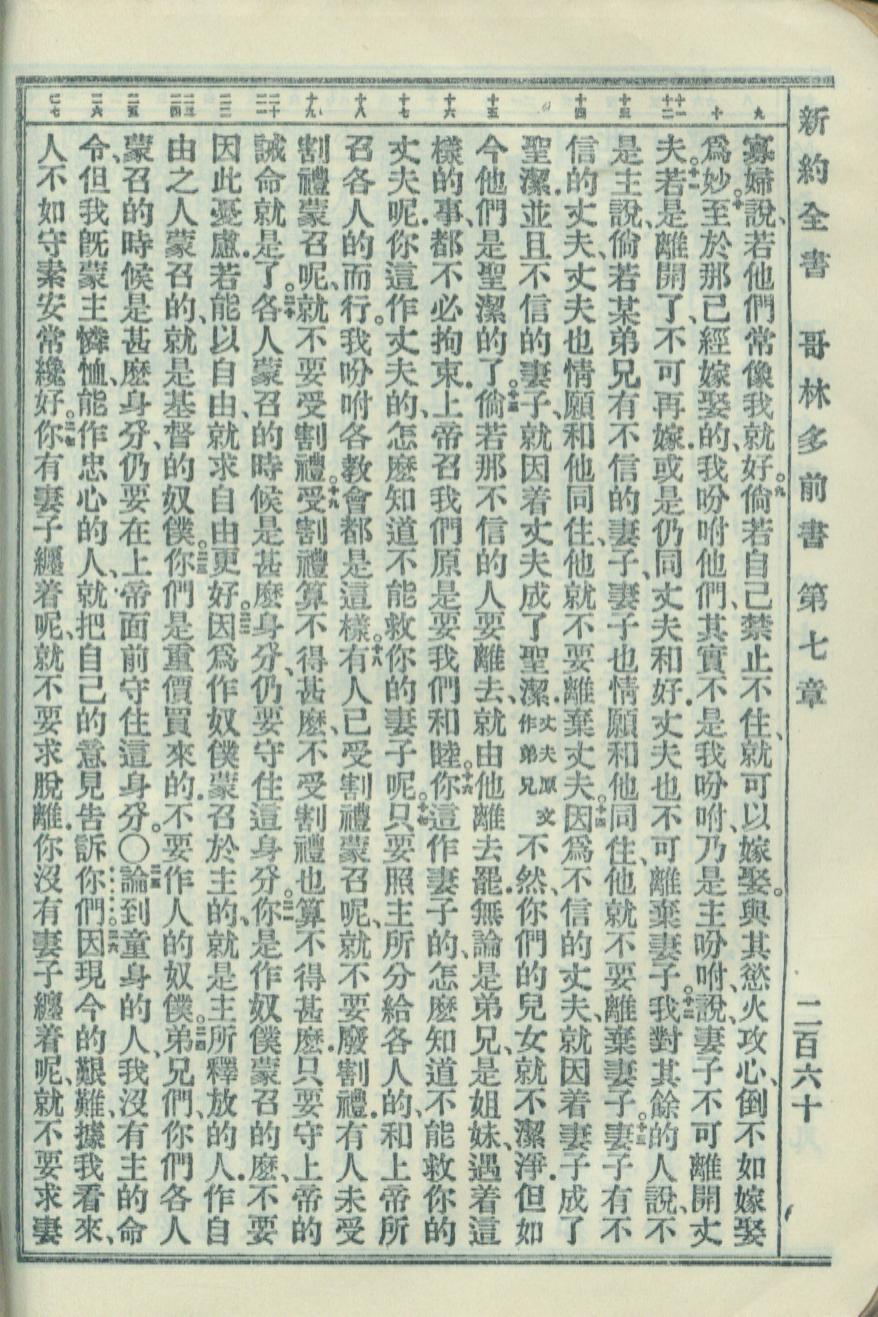 新約全書 哥林多前書 第七章 二百六十
九 十 十一 十二 十三 十四 十五 十六 十七 十八 十九 二十 二一 二二 二三 二四 二五 二六 二七
寡婦說、若他們常像我就好。九倘若自己禁止不住、就可以嫁娶。與其慾火攻心、倒不如嫁娶
爲妙。十至於那已經嫁娶的、我吩咐他們、其實不是我吩咐、乃是主吩咐、說、妻子不可離開丈
夫。十一若是離開了、不可再嫁、或是仍同丈夫和好、丈夫也不可離棄妻子。十二我對其餘的人說、不
是主說、倘若某弟兄有不信的妻子、妻子也情願和他同住、他就不要離棄妻子。十三妻子有不
信的丈夫、丈夫也情願和他同住、他就不要離棄丈夫。十四因爲不信的丈夫、就因着妻子成了
聖潔、並且不信的妻子、就因着丈夫成了聖潔、丈夫原文作弟兄不然、你們的兒女就不潔淨、但如
今他們是聖潔的了。十五倘若那不信的人要離去、就由他離去罷、無論是弟兄、是姐妹、遇着這
樣的事、都不必拘束、上帝召我們原是要我們和睦。十六你這作妻子的、怎麽知道不能救你的
丈夫呢、你這作丈夫的、怎麽知道不能救你的妻子呢。十七只要照主所分給各人的、和上帝所
召各人的而行。我吩咐各教會都是這樣。十八有人已受割禮蒙召呢、就不要廢割禮、有人未受
割禮蒙召呢、就不要受割禮。十九受割禮算不得甚麽、不受割禮也算不得甚麽、只要守上帝的
誡命就是了。二十各人蒙召的時候是甚麽身分、仍要守住這身分。二一你是作奴僕蒙召的麽、不要
因此憂慮、若能以自由、就求自由更好。二二因爲作奴僕蒙召於主的、就是主所釋放的人、作自
由之人蒙召的、就是基督的奴僕。二三你們是重價買來的、不要作人的奴僕。二四弟兄們、你們各人
蒙召的時候是甚麽身分、仍要在上帝面前守住這身分。〇二五論到童身的人、我沒有主的命
令、但我旣蒙主憐恤、能作忠心的人、就把自己的意見告訴你們。二六因現今的艱難、據我看來、
人不如守素安常纔好。二七你有妻子纏着呢、就不要求脫離、你沒有妻子纏着呢、就不要求妻